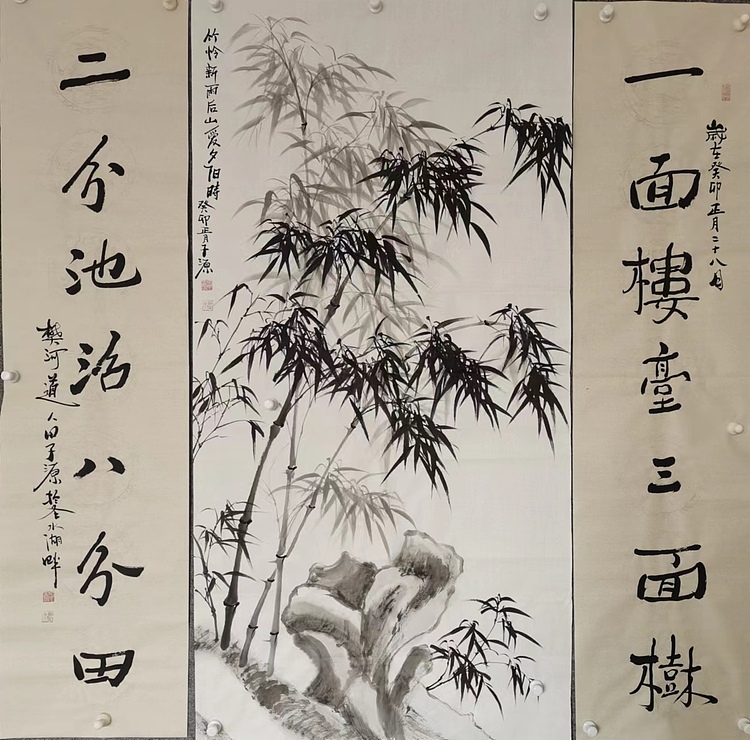 歲在癸卯正月二十八日
一面樓臺三面樹
竹怜新雨后山愛夕阳時
癸卯正月子源
二分池沼八分田
樊河道人田子源於金水湖畔